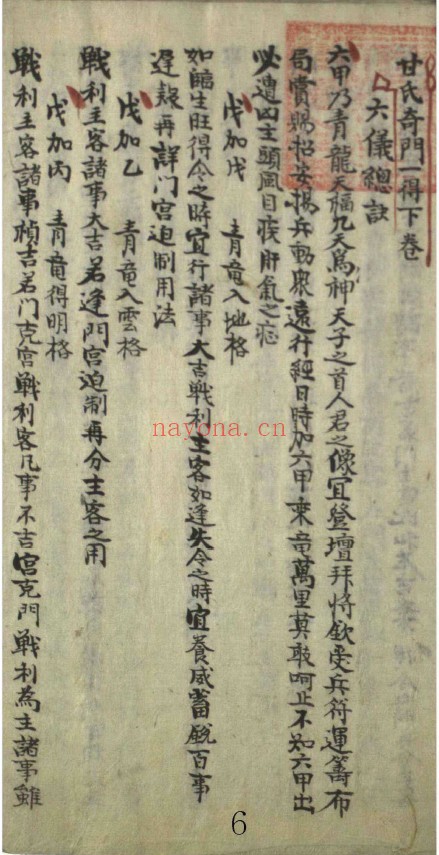 甘氏奇門一得下卷
六儀總註
六甲乃青龍天福九天為神天子之首人君之像宜登壇拜將欽受兵符運籌布
局賞賜招安揚兵動眾遠行經日時加六甲乘竜萬里莫敢呵止不知六甲出
必遭凶主頭風目疾肝氣之症
戊加戊 青竜入地格
如臨生旺得令之時宜行諸事大吉戰利主客如逢失令之時宜養威蓄銳百事
遲疑再詳門宮迫制用法
戊加乙 青竜入雲格
戰利主客諸事大吉若逢門宮迫制再分主客之用
戊加丙 青竜得明格
戰利主客諸事禎吉若門克宮戰利客凡事不吉宮克門戰利為主諸事雖
nayona.cn
6